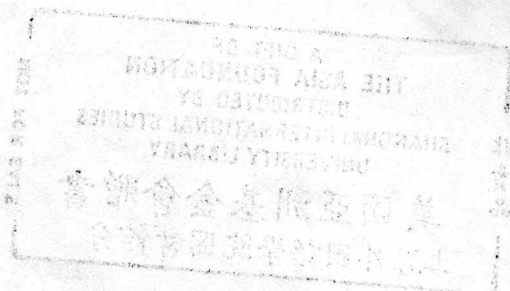 A GIFT OF
THE ASIA FOUNDATION
DISTRIBUTED BY
SHANGHAI INTERNATIONAL STUDIES
UNIVERSITY LIBRARY
美国亚洲基金会赠书
上海外国语学院图书馆
NOT FOR SALE